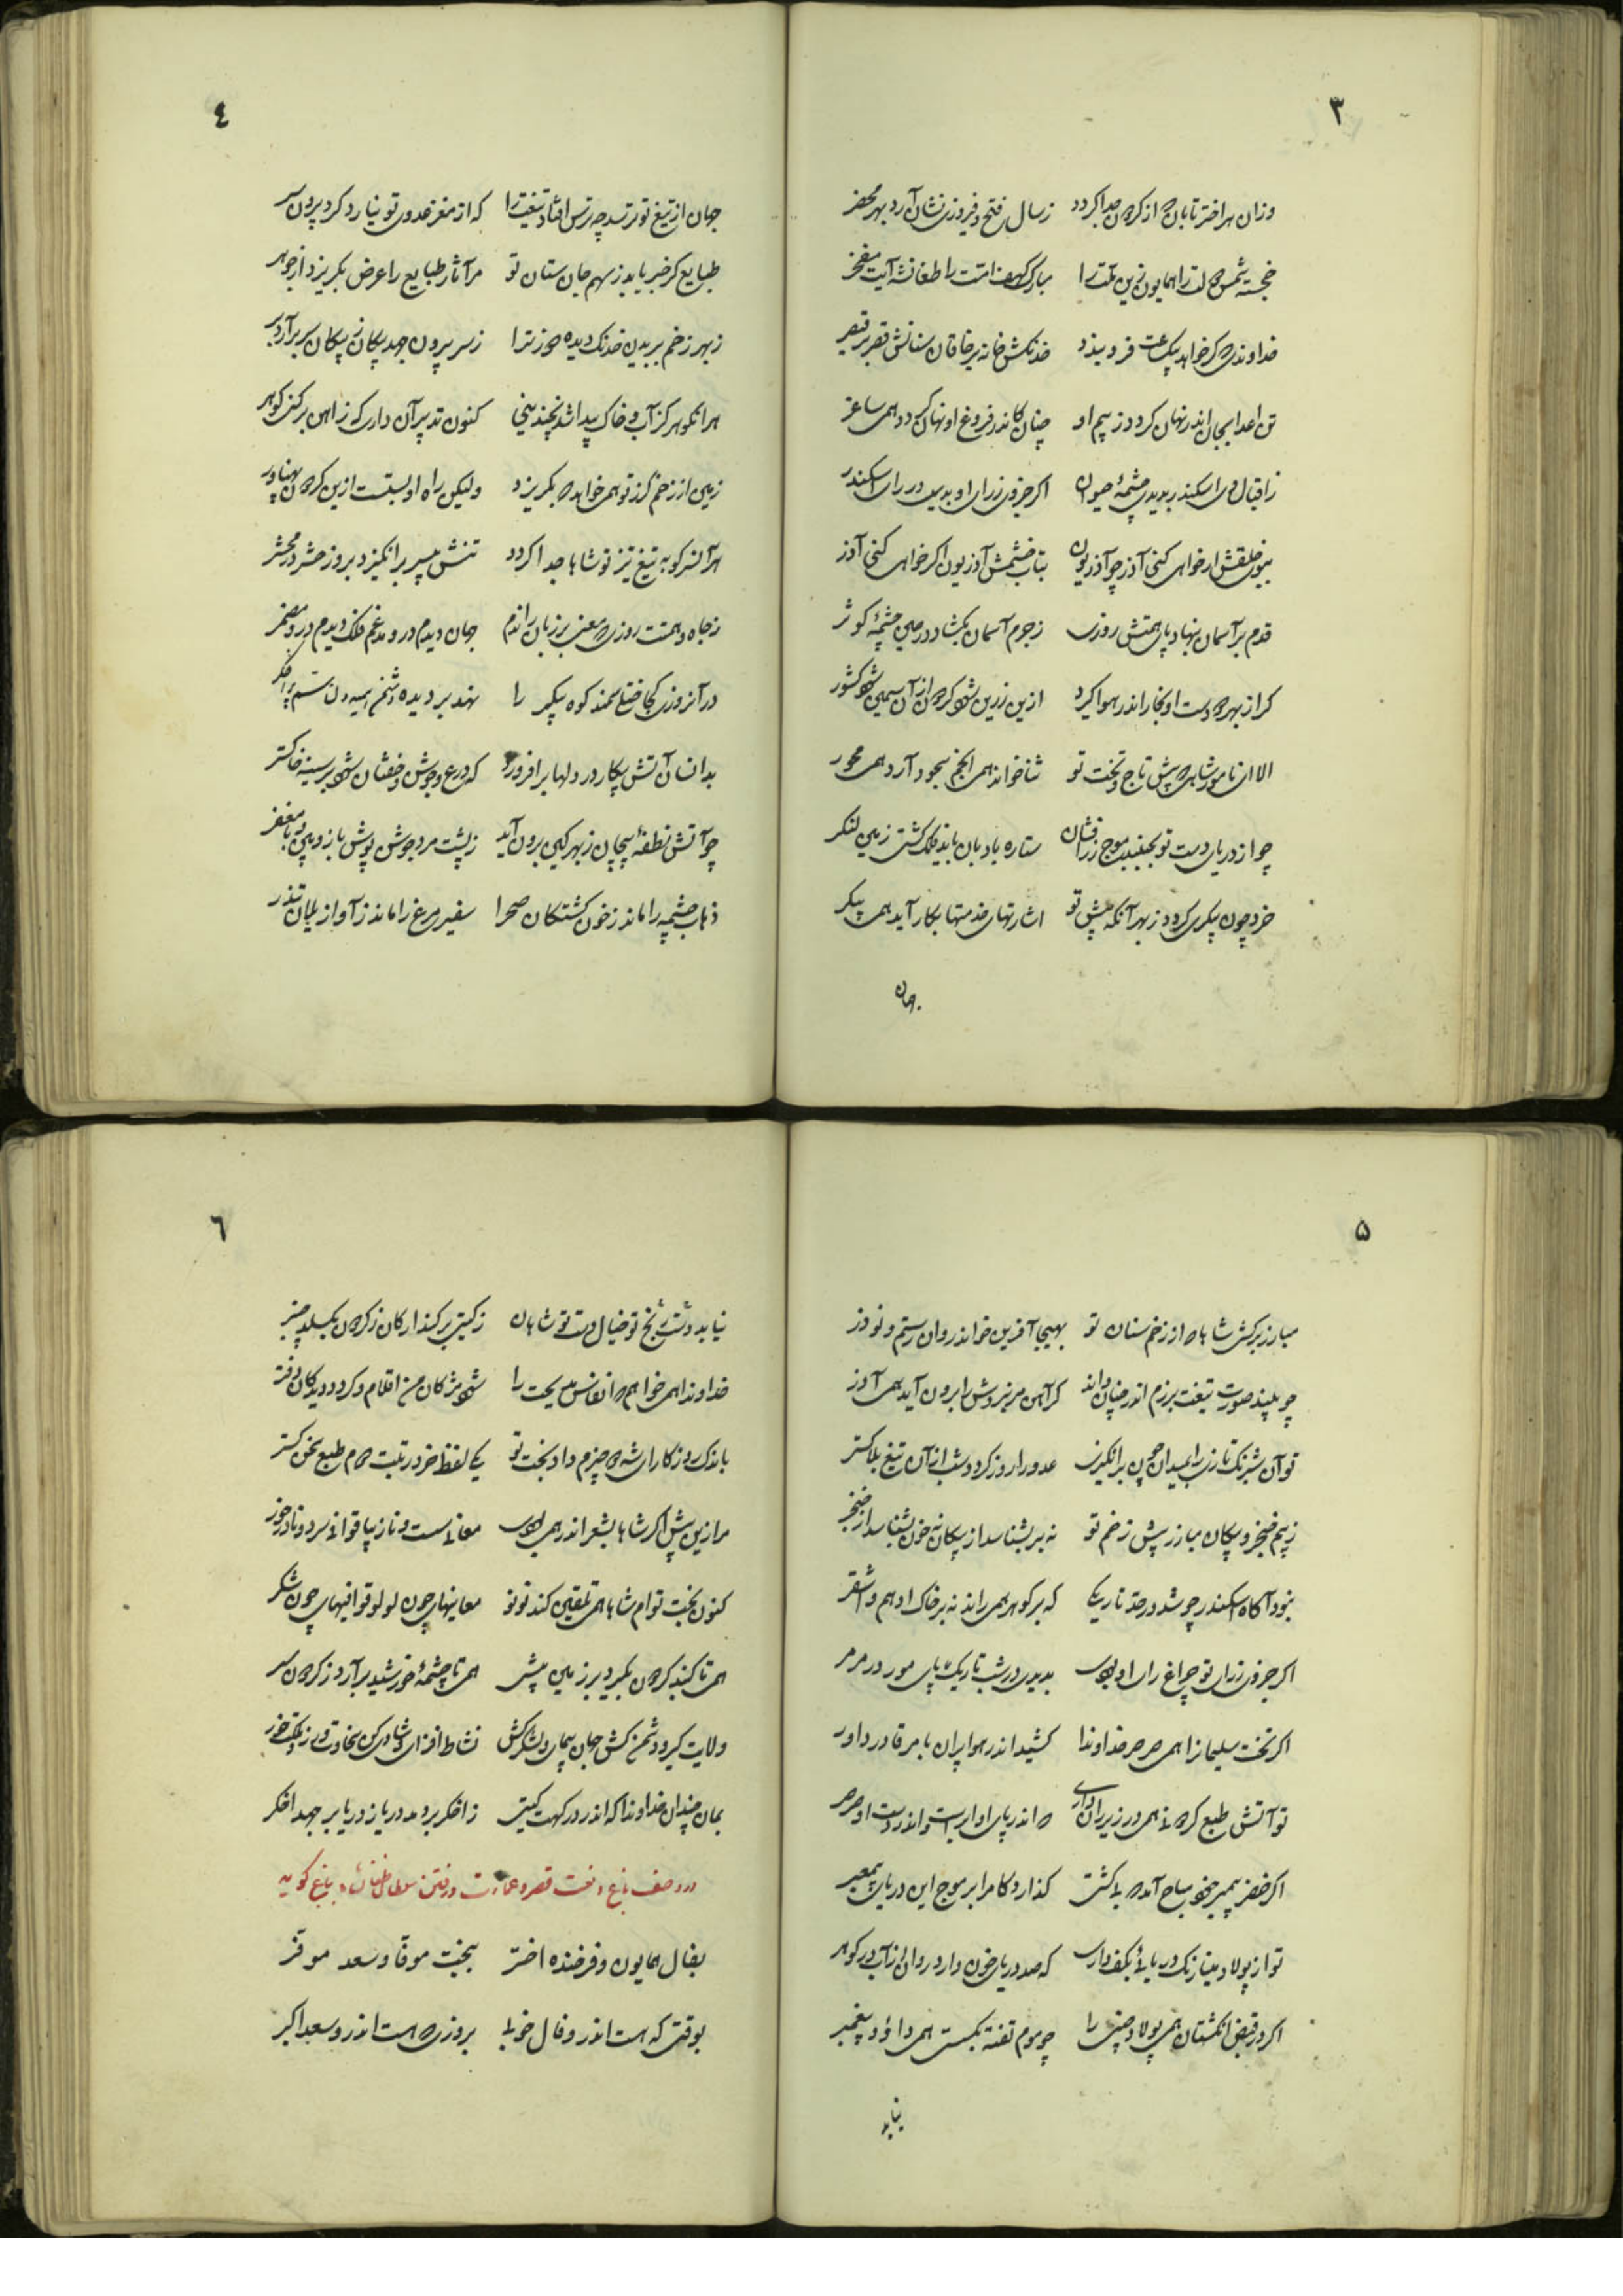 ۳
وزان هر اختر تابان که از گردون جدا گردد زسال فتح و فیروزی نشان آرد بهر محضر
خجسته شمس دولت را همایون زین ملت را مبارک کهف امت را طغانشه آیت مفخر
خداوندی که گر خواهد بیکساعت فرو بندد خدنکش خانه بر خاقان سنانش قصر بر قیصر
تن اعدا بجان اندر نهان گردد ز بیم او چنان کاندر فروغ او نهان گردد همی ساغر
ز اقبال وی اسکندر بدیدی چشمه حیوان اگر جزوی ز رای او بدی در رای اسکندر
ببوی خلقش ار خواهی کنی آذر چو آذریون بتاب خشمش آذریون اگر خواهی کنی آذر
قدم بر آسمان بنهاد پای همتش روزی ز جرم آسمان بگشاد در حین چشمه کوثر
گر از بهر دست او بخار اندر هوا گیرد ازین زرین شود گردون از آن سیمین شود کشور
الا ای نامور شاهی که پیش تاج و تخت تو ثنا خواند همی انجم سجود آرد همی محور
چو از دریای دست تو بجنبد موج زرافشان ستاره بادبان باید فلک کشتی زمین لنگر
خرد چون پیکری گردد ز بهر آنکه پیش تو اشارتهای خدمتها بکار آید همی پیکر
جهان
٤
جهان از تیغ تو ترسد چه ترس افتاد تیغت را که از مغز عدوی تو نیارد کرد بیرون سر
طبایع گر خبر یابد ز سهم جان ستان تو مر آثار طبایع را عرض بگریزد از جوهر
ز بهر زخم بر بدین خدنک دیده دوز ترا ز سر بیرون جهد پیکان ز پیکان سر برآرد پر
هر انگوهر کز آب و خاک پیدا شد بچندینی کنون تدبیر آن داری که ز آهن بر کنی گوهر
زمین از زخم گرز تو همی خواهد که بگریزد ولیکن راه او بستست ازین گردون پهناور
هر آنسر کو به تیغ تیز تو شاها جدا گردد تنش بیسر برانگیزد بروز حشر در محشر
ز جاه و همتت روزی که معنی بر زبان راندم جهان دیدم در و مدغم فلک دیدم در و مضمر
در آنروزی کجا ختلی سمند کوه پیکر را نهد بر دیده دشمن سم
بدانسان آتش پیکار در دلها برافروزد که درع و جوش و خفتان شود بر سینه خاکستر
چو آتش نطفه پیچان ز بهر کین برون آید ز پشت مرد جوشن پوش با زوبین و با مغفر
ذهاب چشمه را ماند ز خون کشتگان صحرا سفیر مرغ را ماند ز آواز یلان تندر
۵
مبارز بر کشی شاها که از زخم سنان تو بهیجا آفرین خواند روان رستم و نوذر
چو بیند صورت تیغت برزم اندر چنان داند کز آهن مر نبردش را برون آید همی آذر
تو آن شبرنگ تازی را بمیدان چون برانگیزی عدو را روز گردد شب از آن تیغ بلاگستر
ز بیم خنجر و پیکان مبارز پیش زخم تو نه بر بشناسد از پیکان نه خون بشناسد از خنجر
نبود آگاه اسکندر چو شد در حد تاریکی که بر گوهر همی راند نه بر خاک ادهم و اشقر
اگر جزوی ز رای تو چراغ رای او بودی بدیدی در شب تاریک پای مور در مرمر
اگر تخت سلیمانرا همی صرصر خداوندا کشید اندر هوا پران بامر قادر داور
تو آتش طبع گردونی همی در زیر ران داری که اندر پای او ابرست و اندر دست او صرصر
اگر خضر پیمبر خود سیاح آمد که بی کشتی گذارد گام را بر موج این دریای پیمبر
تو از پولاد مینا رنگ دریائی بکف داری که صد دریای خون دارد روان از آب در گوهر
اگر در قبض انگشتان همی پولاد چینی را چو موم تفته بگسستی همی داود پیغمبر
نیابد
٦
نیابد دشت رنج تو خیال دست تو شاهان ز گیتی بر کند ارکان ز گردون بگسلد چنبر
خداوندا همی خواهم که انفاس مدیحت را شود مژگان من اقلام و گردد دیدگان دفتر
باندک روزگار ای شه که چیزم داد بخت تو یکی لفظ خرد رتبت دوم طبع سخن گستر
مرا زین پیش اگر شاها بشعر اندر همی بودی معانی سست و نازیبا قوافی سرد و نادرخور
کنون بخت توام شاها همی تلقین کند نونو معانیهای چون لولو قوافیهای چون شکر
همی تا گنبد گردون بگردد بر زمین پیش همی تا چشمه خورشید برآرد ز گردون سر
ولایت گیر و دشمن کش جهان پیمای و لشکر کش نشاط افزای و شادی کن سخاوت ورز و نیکی خر
بمان چندان خداوندا که اندر درگهت گیتی ز اخگر بر دمد دریا ز دریا بر جهد اخگر
در وصف باغ و نعت قصر و عمارت و رفتن سلطان طغانشاه بباغ گوید
بفال همایون و فرخنده اختر ببخت موفا و سعد موفر
بوقتی که هست اندرو فال خوبی بروزی که هست اندرو سعد اکبر